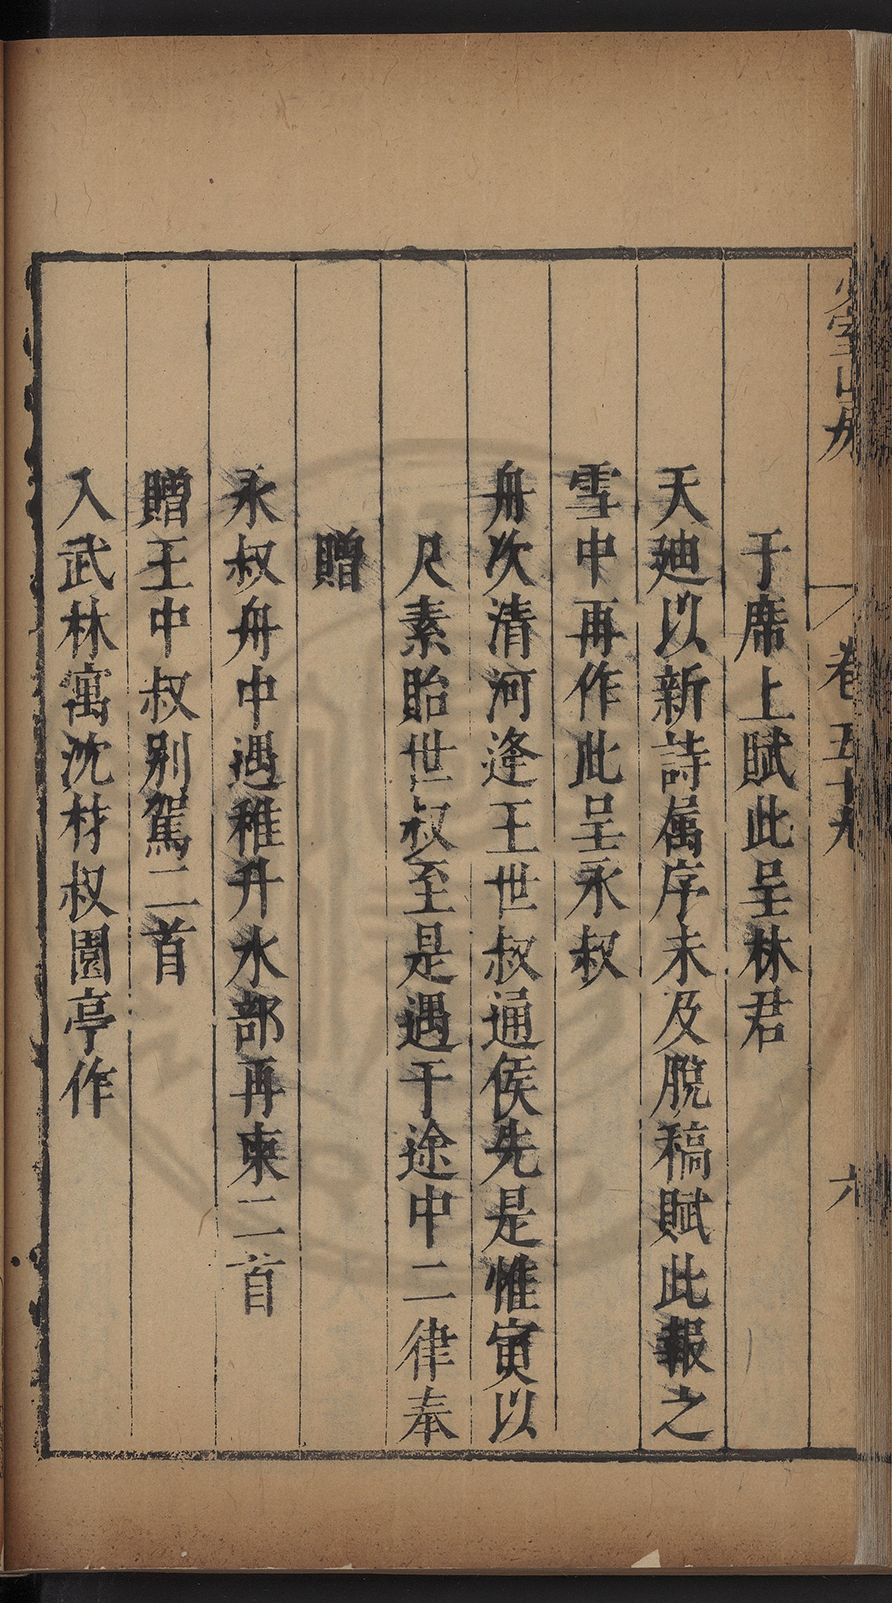 少室山房
卷五十九
六
于席上賦此呈林君
天廸以新詩属序未及脫稿賦此報之
雪中再作此呈永叔
舟次清河逢王世叔通侯先是惟寅以
尺素貽世叔至是遇于途中二律奉
贈
永叔舟中遇稚升水部再柬二首
贈王中叔别駕二首
入武林寓沈材叔園亭作